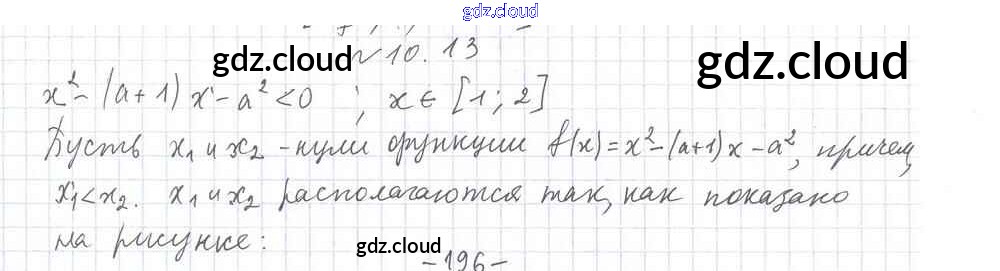 gdz.cloud
№10.13
gdz.cloud
gdz.cloud
x² - (a+1)x - a² < 0 ; x ∈ [1; 2]
Пусть x₁ и x₂ - нули функции f(x) = x² - (a+1)x - a², причем,
x₁ < x₂. x₁ и x₂ располагаются так, как показано
на рисунке:
gdz.cloud
-196-